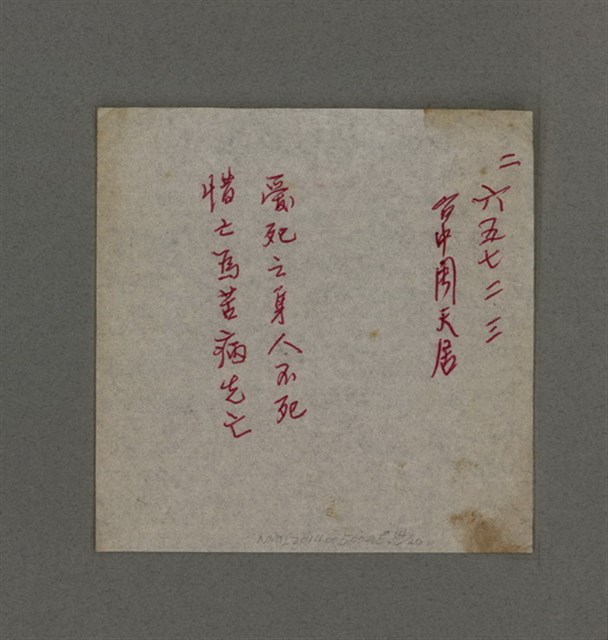 二六五七二三
台中周天居
愛死之身人不死
惜亡為苦病先亡